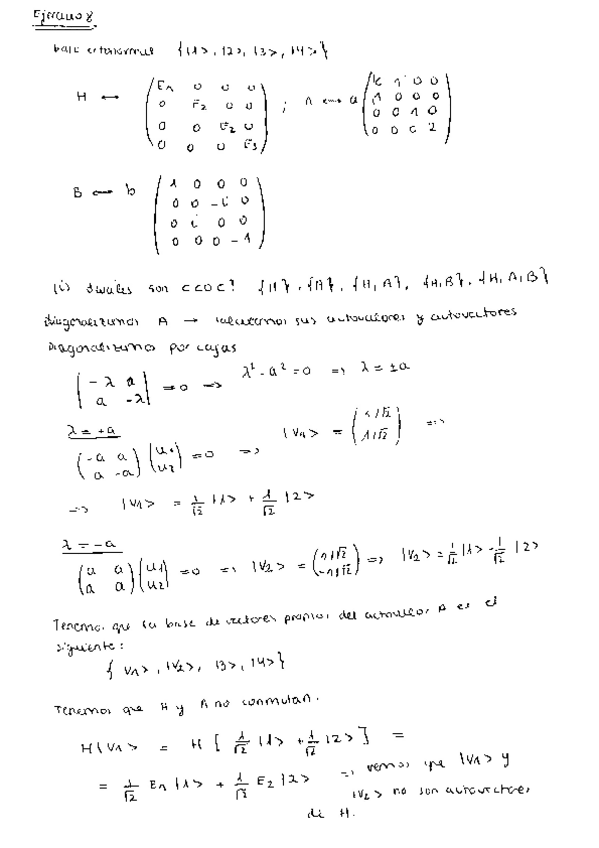 Ejercicio 8
base ortonormal {|1>, |2>, |3>, |4>}
H ↔ (E1 0 0 0 ; A ↔ a (0 1 0 0
0 E2 0 0 1 0 0 0
0 0 E2 0 0 0 1 0
0 0 0 E3) 0 0 0 2)
B ↔ b (1 0 0 0
0 0 -i 0
0 i 0 0
0 0 0 -1)
(i) Cuáles son CCOC? {H}, {A}, {H,A}, {H,B}, {H,A,B}
diagonalizamos A → calculamos sus autovalores y autovectores
Diagonalizamos por cajas
|-λ a
a -λ| = 0 → λ² - a² = 0 ⇒ λ = ±a
λ = +a
(-a a
a -a) (u1
u2) = 0 ⇒ |v1> = (1/√2
1/√2) ⇒
⇒ |v1> = 1/√2 |1> + 1/√2 |2>
λ = -a
(a a
a a) (u1
u2) = 0 ⇒ |v2> = (1/√2
-1/√2) ⇒ |v2> = 1/√2 |1> - 1/√2 |2>
Tenemos que la base de vectores propios del autovalor A es el
siguiente:
{|v1>, |v2>, |3>, |4>}
Tenemos que H y A no conmutan.
H|v1> = H [1/√2 |1> + 1/√2 |2>] =
= 1/√2 E1 |1> + 1/√2 E2 |2> ⇒ vemos que |v1> y
|v2> no son autovectores
de H.